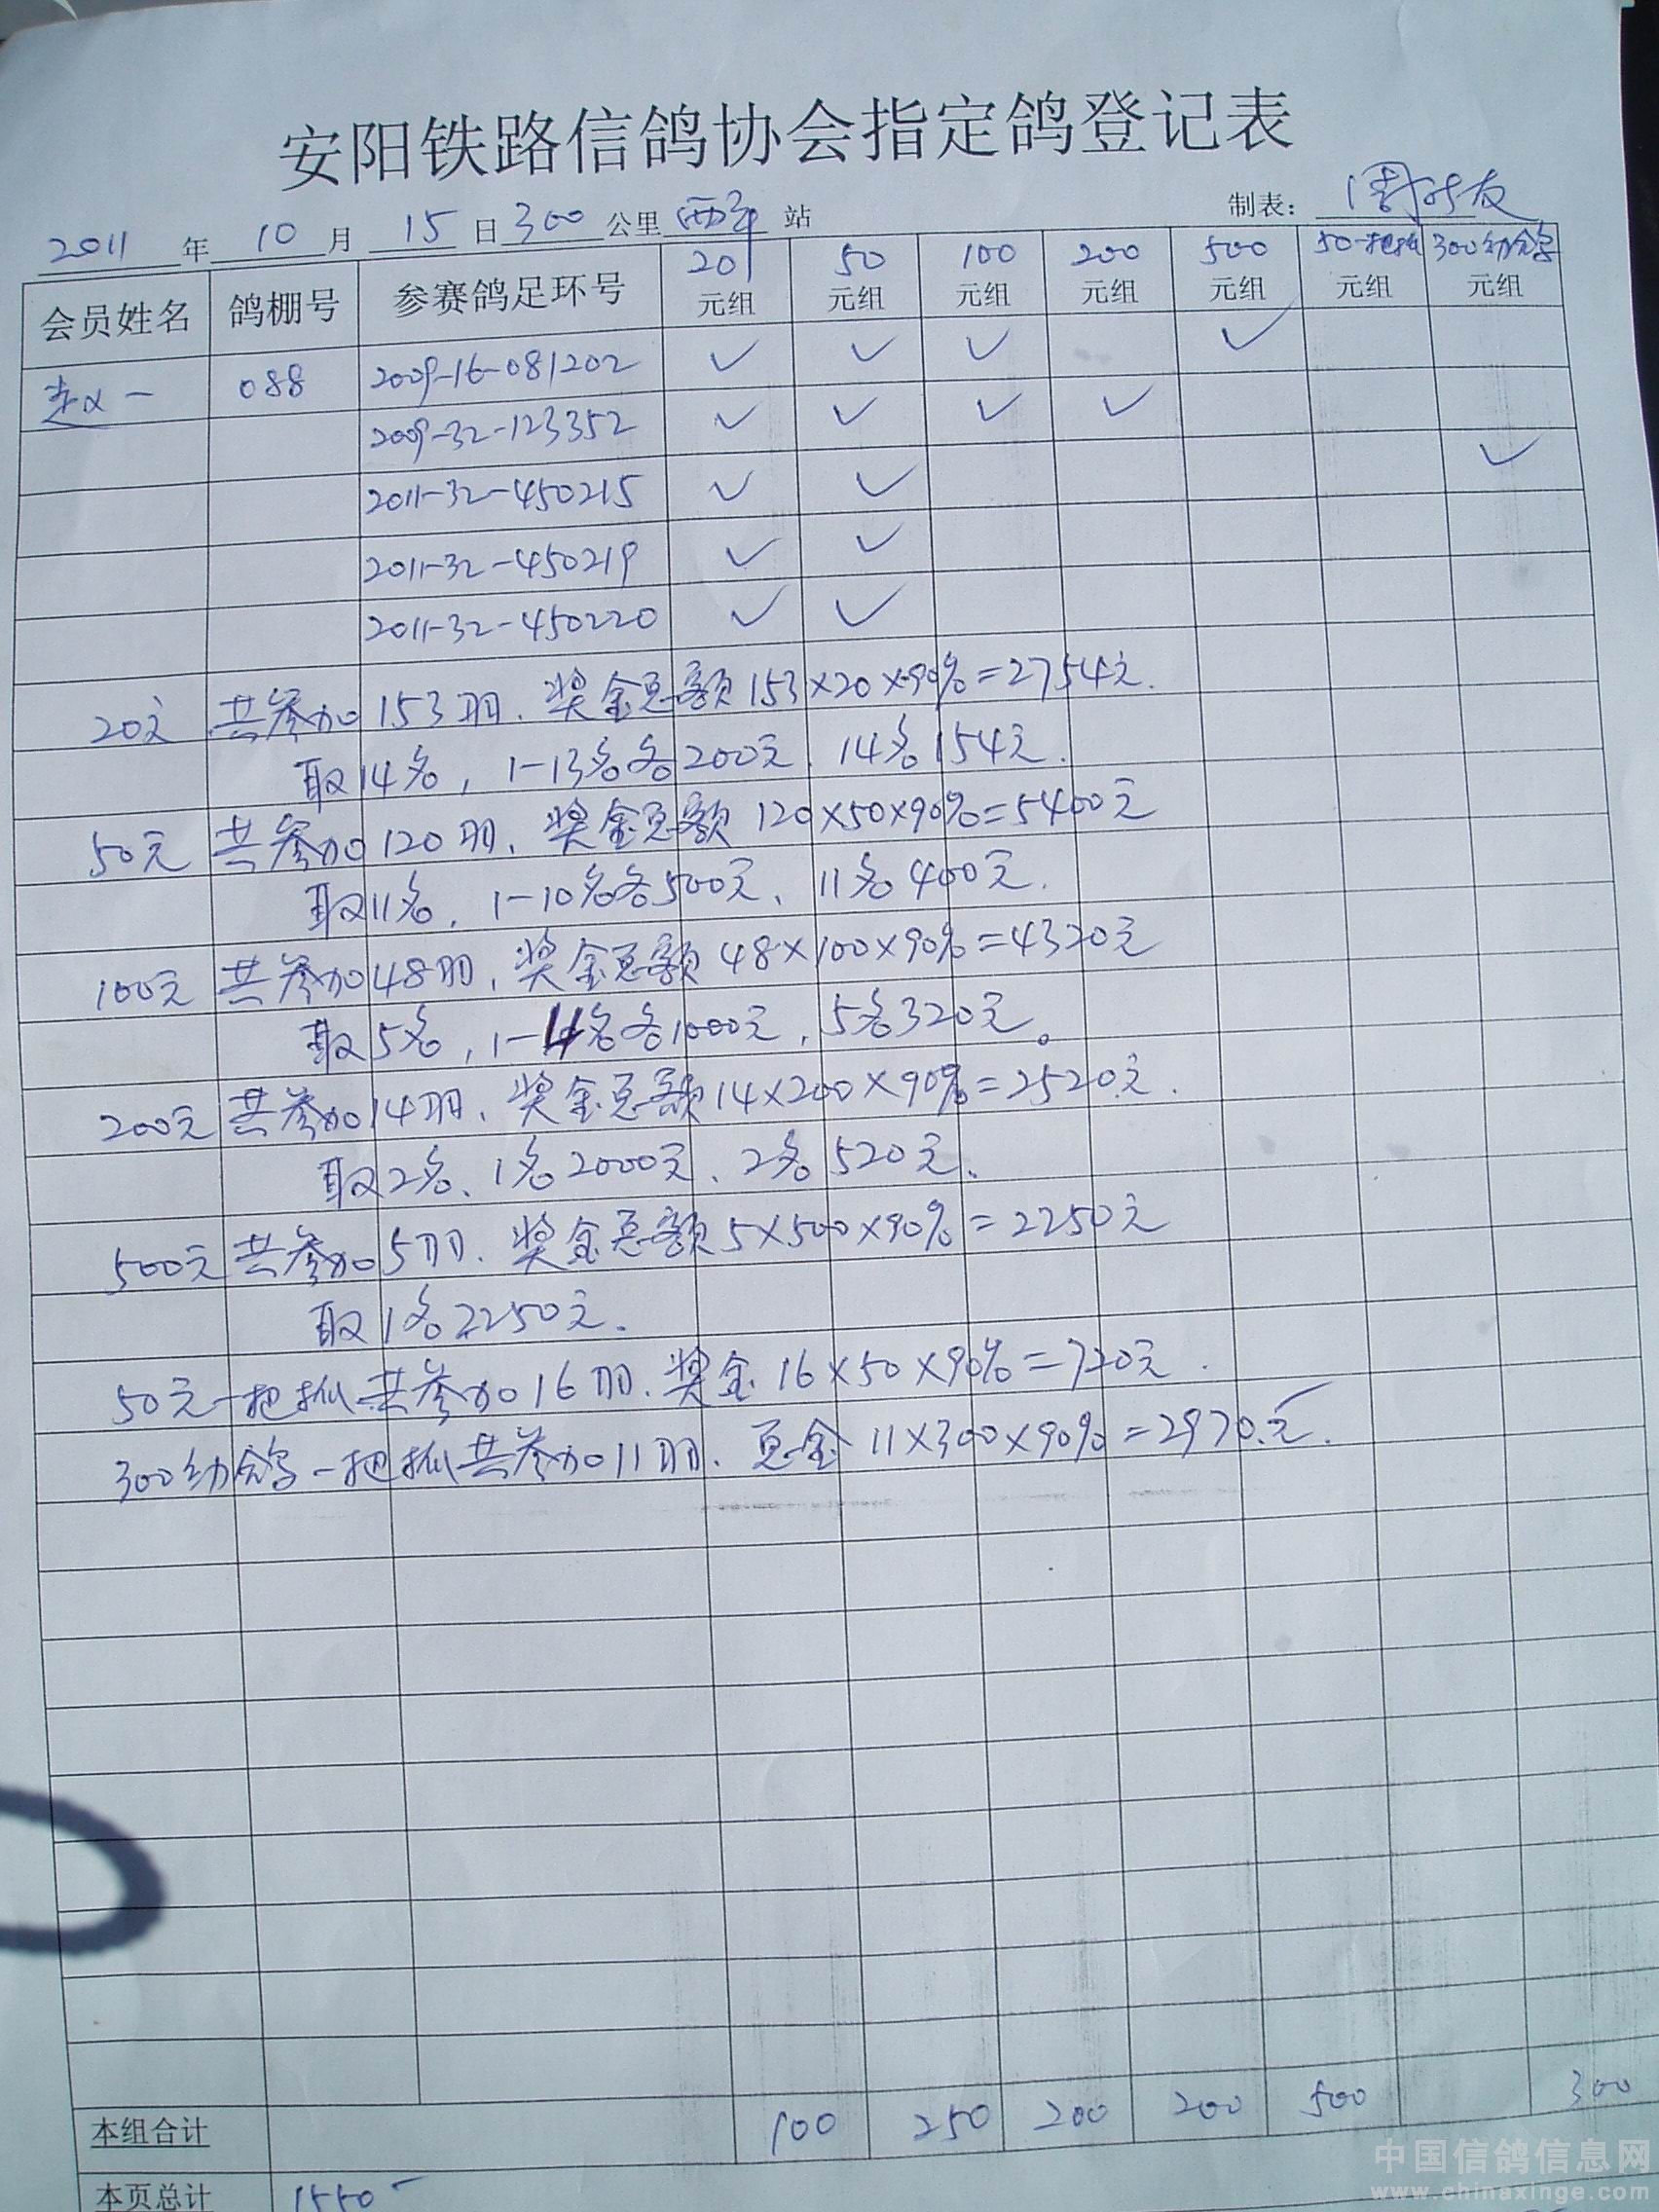 安阳铁路信鸽协会指定鸽登记表
2011 年 10 月 15 日 300 公里 西平 站 制表：
会员姓名 鸽棚号 参赛鸽足环号 20元组 50元组 100元组 200元组 500元组 50一把抓元组 300幼鸽元组
赵 一 088 2009-16-081202 ✓ ✓ ✓ ✓
2009-32-123352 ✓ ✓ ✓ ✓
2011-32-450215 ✓ ✓ ✓
2011-32-450219 ✓ ✓
2011-32-450220 ✓ ✓
20元 共参加153羽．奖金总额153×20×90%=2754元．
取14名，1-13名各200元．14名154元．
50元 共参加120羽．奖金总额120×50×90%=5400元
取11名，1-10名各500元、11名400元．
100元 共参加48羽，奖金总额48×100×90%=4320元
取5名，1-4名各1000元，5名320元。
200元 共参加14羽．奖金总额14×200×90%=2520元．
取2名、1名2000元、2名520元、
500元 共参加5羽．奖金总额5×500×90%=2250元
取1名2250元．
50元一把抓共参加16羽．奖金16×50×90%=720元．
300幼鸽一把抓共参加11羽．总金11×300×90%=2970.元．
本组合计 100 250 200 200 500 300
本页总计 1550
中国信鸽信息网
www.chinaxinge.com